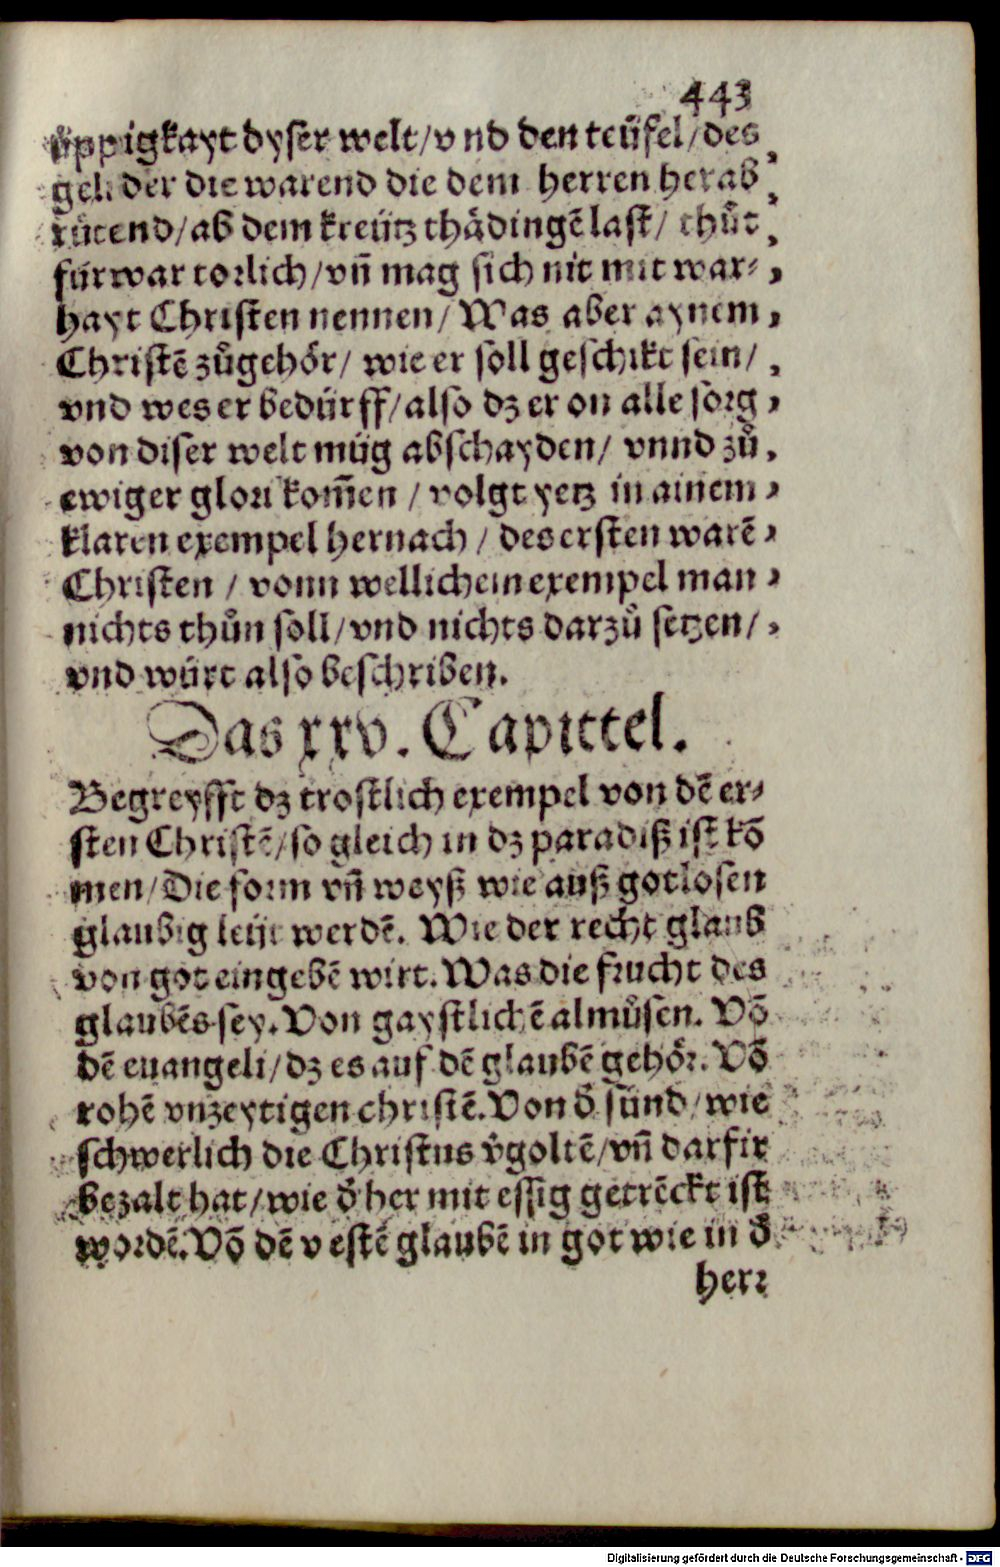 443
üppigkayt dyser welt/vnd den teüfel/des
gelider die warend die dem herren herab
rütend/ab dem kreütz thädingē last/ thůt
fürwar torlich/vñ mag sich nit mit war⸗
hayt Christen nennen/Was aber aynem
Christē zůgehör/ wie er soll geschikt sein/
vnd wes er bedürff/also dz er on alle sorg
von diser welt müg abschayden/ vnnd zů
ewiger glori kom̄en /volgt yetz in ainem
klaren exempel hernach / des ersten warē
Christen / vonn wellichem exempel man
nichts thůn soll/vnd nichts darzů setzen/
vnd würt also beschriben.
Das xxv. Capittel.
Begreyfft dz trostlich exempel von dē er⸗
sten Christē/so gleich in dz paradiß ist kō
men/Die form vñ weyß wie auß gotlosen
glaubig leüt werdē. Wie der recht glaub
von got eingebē wirt. Was die frucht des
glaubēs sey. Von gaystlichē almůsen. Vō
dē euangeli/dz es auf dē glaubē gehör. Vō
rohē vnzeytigen christē. Von d̄ sünd/wie
schwerlich die Christus v̄goltē/vñ darfir
bezalt hat/wie d̄ her mit essig getrēckt ist
wordē. Vō dē vestē glaubē in got wie in d̄
herr
Digitalisierung gefördert durch die Deutsche Forschungsgemeinschaft - DFG